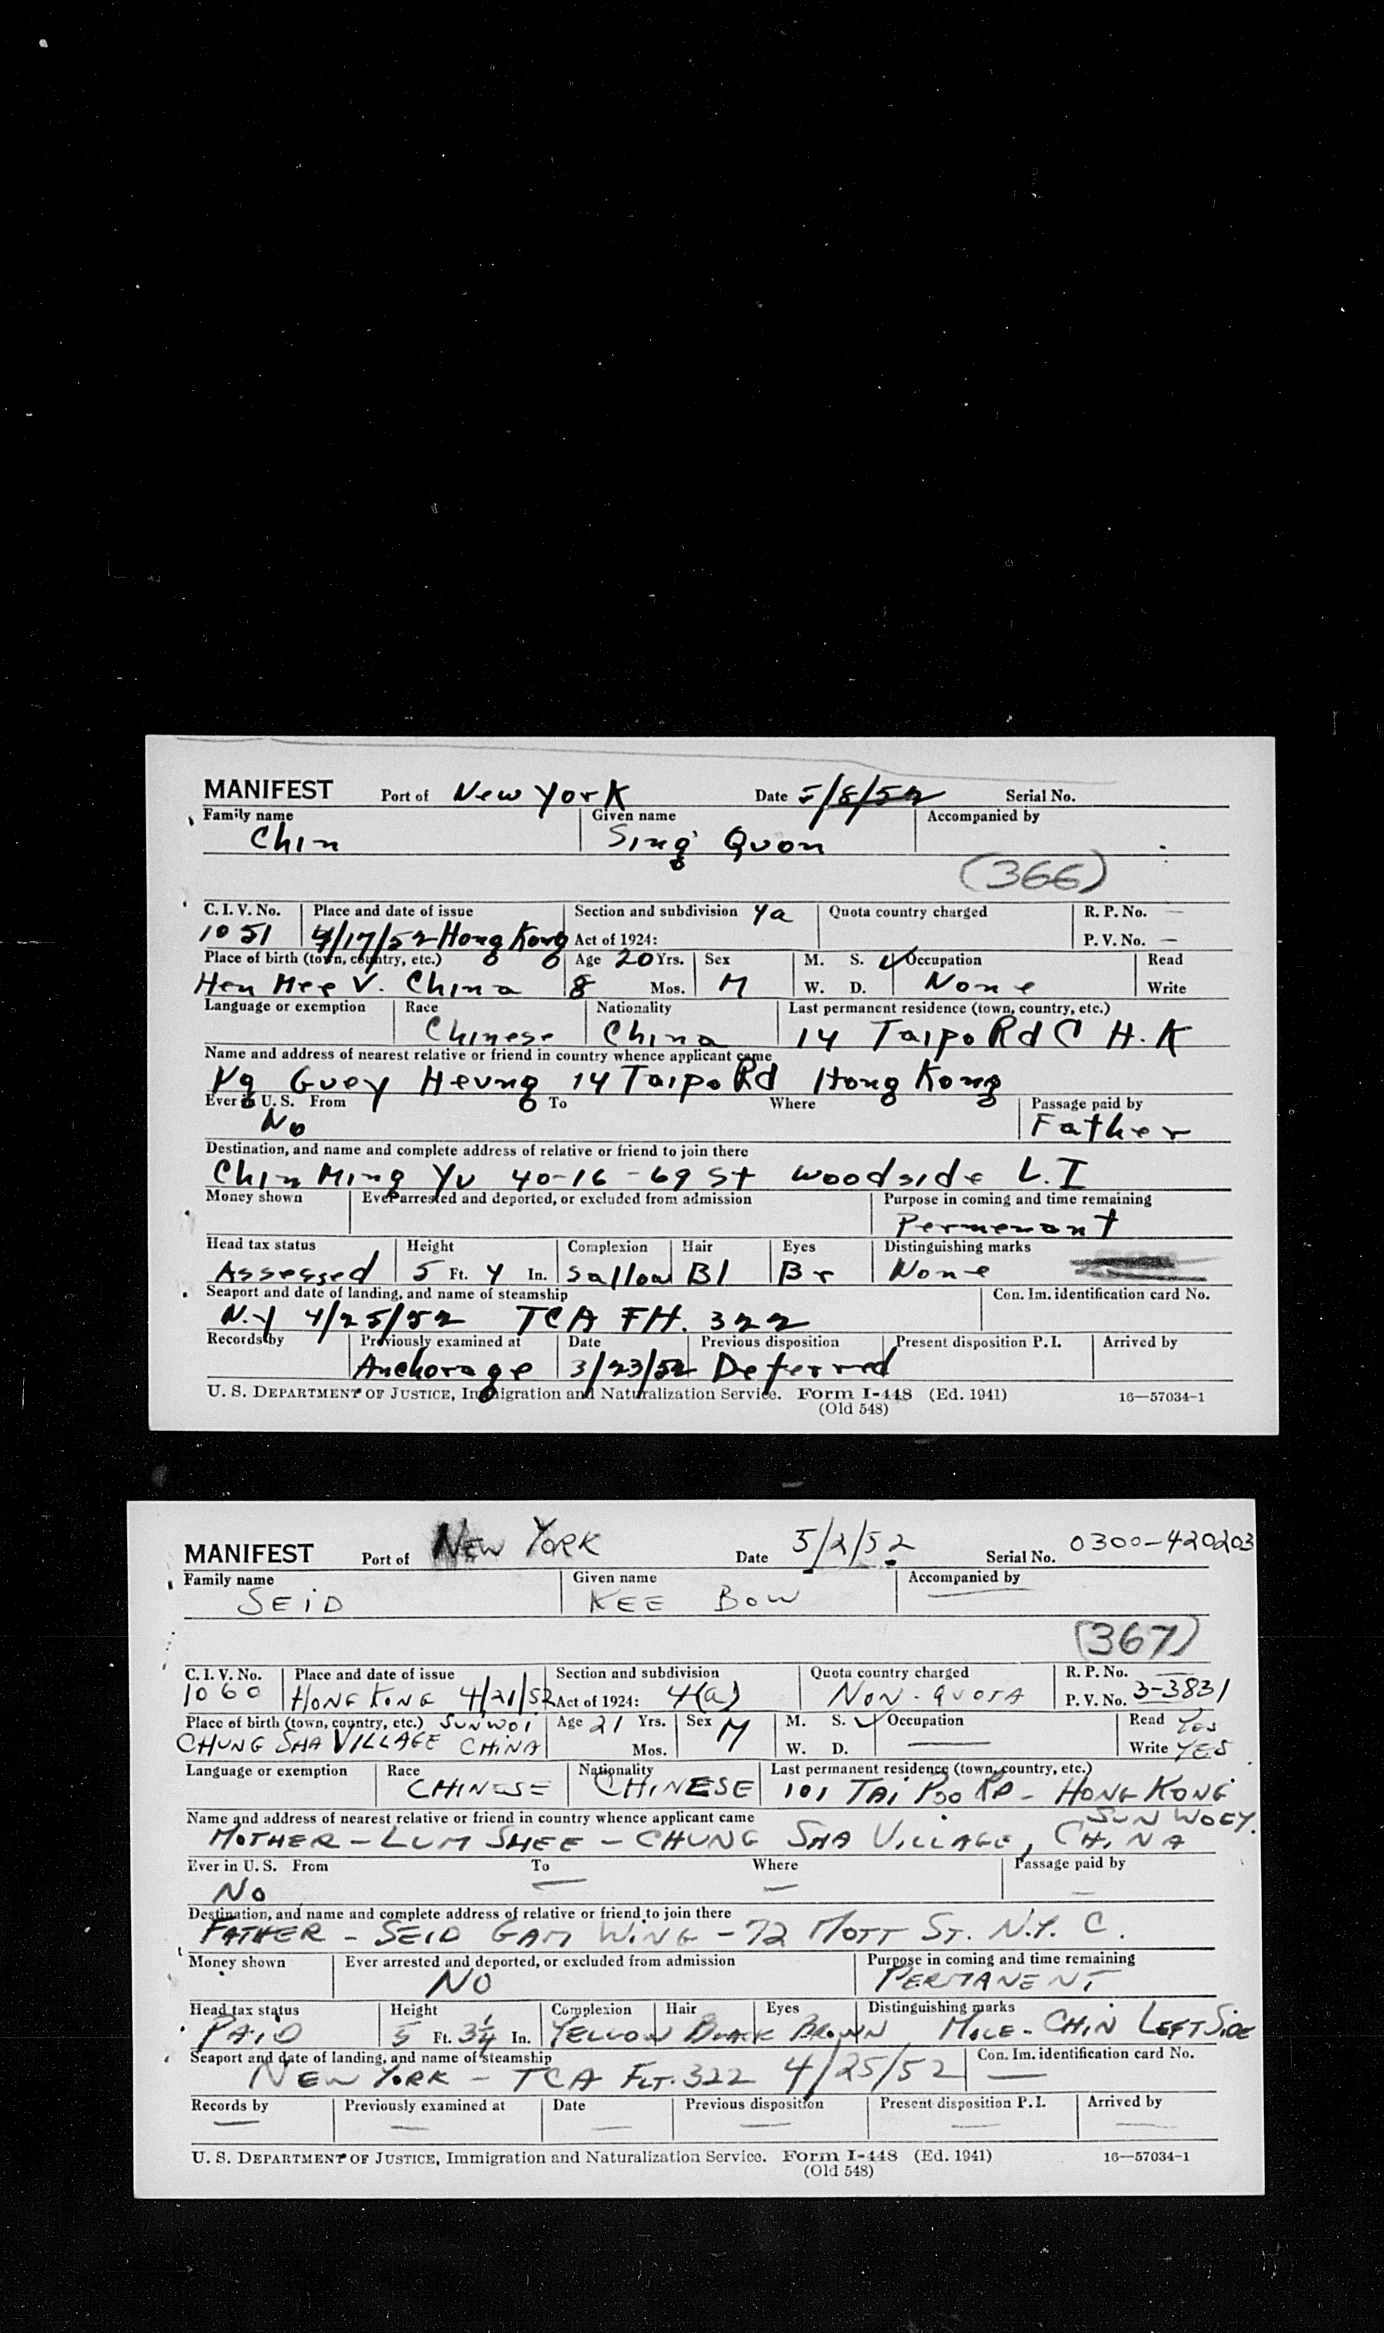 MANIFEST Port of New York Date 5/8/52 Serial No.
Family name Given name Accompanied by
Chin Sing Quon
(366)
C. I. V. No. Place and date of issue Section and subdivision 4a Quota country charged R. P. No. —
1051 4/17/52 Hong Kong Act of 1924: P. V. No. —
Place of birth (town, country, etc.) Age 20 Yrs. Sex M. S. ✓ Occupation Read
Hen Mee V. China 8 Mos. M W. D. None Write
Language or exemption Race Nationality Last permanent residence (town, country, etc.)
Chinese China 14 Taipo Rd C H.K
Name and address of nearest relative or friend in country whence applicant came
Ng Guey Heung 14 Taipo Rd Hong Kong
Ever in U. S. From To Where Passage paid by
No Father
Destination, and name and complete address of relative or friend to join there
Chin Ming Yu 40-16-69 St Woodside L.I
Money shown Ever arrested and deported, or excluded from admission Purpose in coming and time remaining
Permenant
Head tax status Height Complexion Hair Eyes Distinguishing marks
Assessed 5 Ft. 4 In. Sallow Bl Br None
Seaport and date of landing, and name of steamship Con. Im. identification card No.
N.Y 4/25/52 TCA Flt. 322
Records by Previously examined at Date Previous disposition Present disposition P. I. Arrived by
Anchorage 3/23/52 Deferred
U. S. DEPARTMENT OF JUSTICE, Immigration and Naturalization Service. Form I-448 (Ed. 1941) 16—57034-1
(Old 548)
MANIFEST Port of NEW YORK Date 5/2/52 Serial No. 0300-420203
Family name Given name Accompanied by
SEID KEE BOW —
(367)
C. I. V. No. Place and date of issue Section and subdivision Quota country charged R. P. No. —
1060 HONG KONG 4/21/52 Act of 1924: 4(a) NON-QUOTA P. V. No. 3-3831
Place of birth (town, country, etc.) SUNWOI Age 21 Yrs. Sex M M. S. ✓ Occupation Read YES
CHUNG SHA VILLAGE CHINA Mos. W. D. — Write YES
Language or exemption Race Nationality Last permanent residence (town, country, etc.)
CHINESE CHINESE 101 TAI POO RD - HONG KONG
Name and address of nearest relative or friend in country whence applicant came SUN WOEY.
MOTHER - LUM SHEE - CHUNG SHA VILLAGE, CHINA
Ever in U. S. From To Where Passage paid by
No — — —
Destination, and name and complete address of relative or friend to join there
FATHER - SEID GAM WING - 72 MOTT ST. N.Y.C.
Money shown Ever arrested and deported, or excluded from admission Purpose in coming and time remaining
NO PERMANENT
Head tax status Height Complexion Hair Eyes Distinguishing marks
PAID 5 Ft. 3 1/4 In. YELLOW BLACK BROWN MOLE - CHIN LEFT SIDE
Seaport and date of landing, and name of steamship Con. Im. identification card No.
NEW YORK - TCA FLT. 322 4/25/52 —
Records by Previously examined at Date Previous disposition Present disposition P. I. Arrived by
— — — — — —
U. S. DEPARTMENT OF JUSTICE, Immigration and Naturalization Service. Form I-448 (Ed. 1941) 16—57034-1
(Old 548)